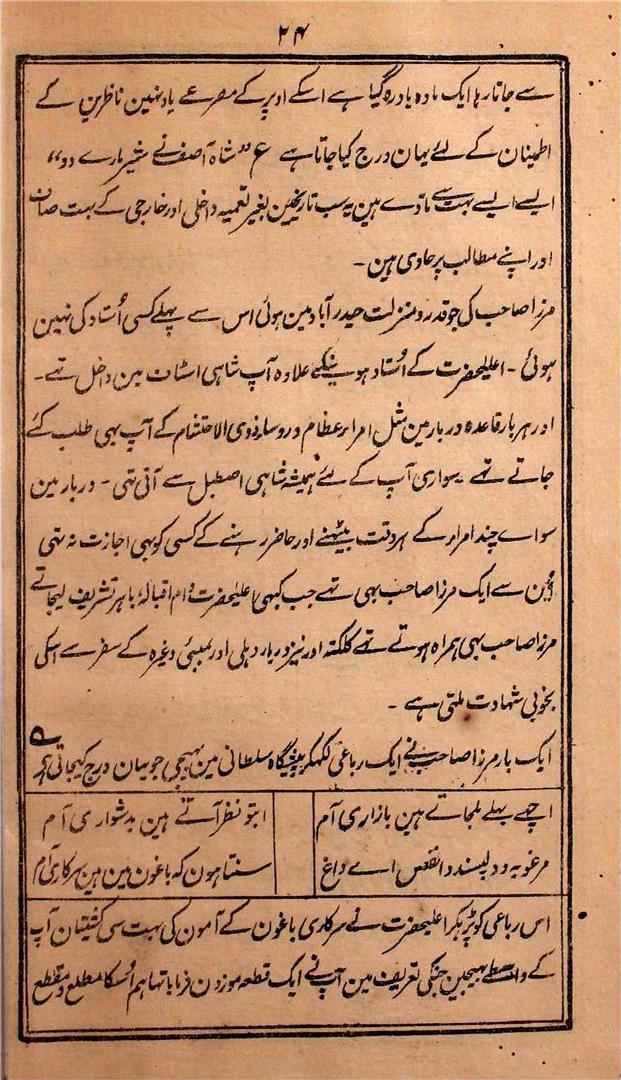 ۲۴
سے جاتا رہا ایک مادہ یاد رہ گیا ہے اسکے اوپر کے مصرعے یاد نہین ناظرین کے
اطمینان کے لئے یہان درج کیا جاتا ہے ع "شاہ آصف نے شیر مارے دو"
ایسے ایسے بہت سے مادّے ہین یہ سب تاریخین بغیر تعمیہ داخلی اور خارجی کے بہت صاف
اور اپنے مطالب پر حاوی ہین۔
مرزا صاحب کی جو قدر و منزلت حیدرآباد مین ہوئی اس سے پہلے کسی اُستاد کی نہین
ہوئی۔ اعلیحضرت کے اُستاد ہونیکے علاوہ آپ شاہی اسٹاف مین داخل تھے۔
اور ہر باقاعدہ دربار مین مثل امراء عظام و روساء ذوی الاحتشام کے آپ بھی طلب کئے
جاتے تھے سواری آپ کے لئے ہمیشہ شاہی اصطبل سے آتی تھی۔ دربار مین
سواے چند امراء کے ہر وقت بیٹھنے اور حاضر رہنے کے کسی کو بھی اجازت نہ تھی
اُن سے ایک مرزا صاحب بھی تھے جب کبھی اعلیٰحضرت دام اقبالہٗ باہر تشریف لیجاتے
مرزا صاحب بھی ہمراہ ہوتے تھے کلکتہ اور نیز دربار دہلی اور بمبئی وغیرہ کے سفر سے اسکی
بخوبی شہادت ملتی ہے۔
ایک بار مرزا صاحب نے ایک رباعی لکھکر پیشگاہ سلطانی مین بھیجی جو یہان درج کیجاتی ہے
اچھے پہلے ملجاتے ہین بازاری آم ابتو نظر آتے ہین بدشواری آم
مرغوب و دلپسند و انفس اے داغ سنتا ہون کہ باغون مین ہین سرکاری آم
اس رباعی کو پڑہکر اعلیحضرت نے سرکاری باغون کے آمون کی بہت سی کشتیان آپ
کے واسطے بھیجین جنکی تعریف مین آپ نے ایک قطعہ موزون فرمایا تھا ہم اُسکا مطلع و مقطع